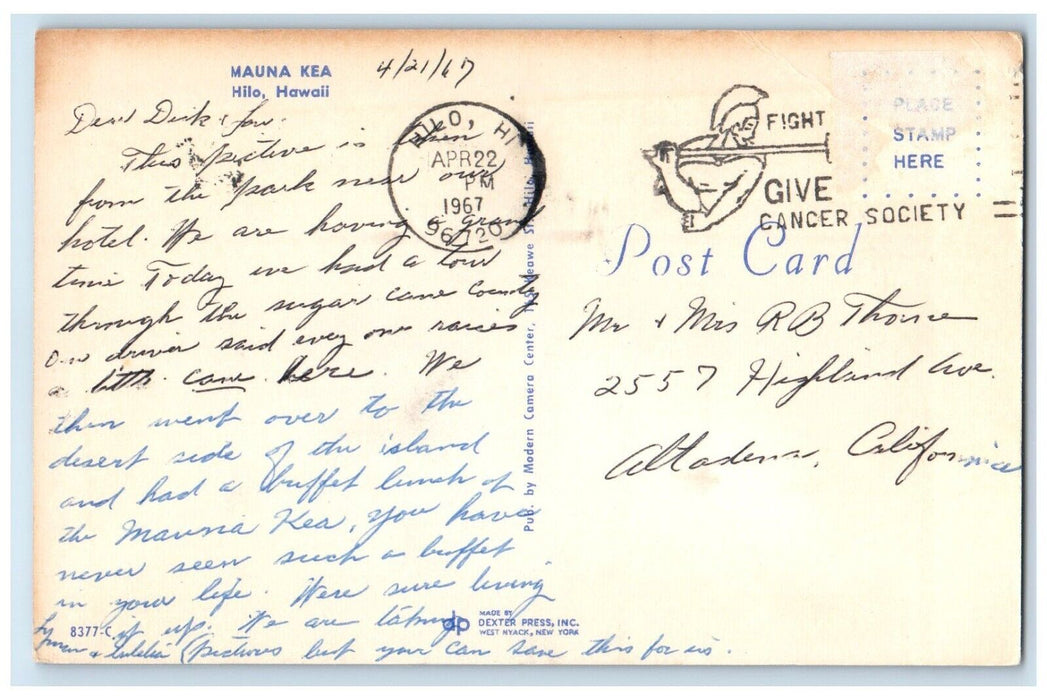 MAUNA KEA
Hilo, Hawaii
4/21/67
Dear Dick &
This picture is taken
from the park near our
hotel. We are having a grand
time Today we had a tour
through the sugar cane County
Our driver said every one raises
a little cane here. We
then went over to the
desert side of the island
and had a buffet lunch at
the Mauna Kea, you have
never seen such a buffet
in your life. Were sure living
it up. We are taking
pictures but your can save this for us.
Lyman &
8377-C
HILO, HI
APR 22
PM
1967
96720
FIGHT
GIVE
CANCER SOCIETY
PLACE
STAMP
HERE
Post Card
Mr & Mrs R B Thorne
2557 Highland Ave.
Altadena, California
Pub. by Modern Camera Center, Hilo,
MADE BY
DEXTER PRESS, INC.
WEST NYACK, NEW YORK
dp